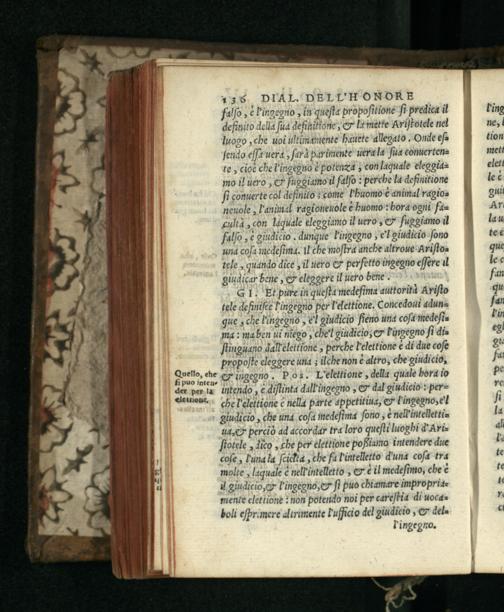 136 DIAL. DELL'HONORE
falso, è l'ingegno, in questa propositione si predica il
definito della sua definitione, & la mette Aristotele nel
luogo, che uoi ultimamente hauete allegato. Onde es-
sendo essa uera, sarà parimente uera la sua conuerten-
te, cioè che l'ingegno è potenza, con laquale eleggia-
mo il uero, & fuggiamo il falso: perche la definitione
si conuerte col definito: come l'huomo è animal ragio-
neuole, l'animal ragioneuole è huomo: hora ogni fa-
cultà, con laquale eleggiamo il uero, & fuggiamo il
falso, è giudicio. dunque l'ingegno, e'l giudicio sono
una cosa medesima. Il che mostra anche altroue Aristo-
tele, quando dice, il uero & perfetto ingegno essere il
giudicar bene, & eleggere il uero bene.
GI. Et pure in questa medesima autorità Aristo
tele definisce l'ingegno per l'elettione. Concedoui adun-
que, che l'ingegno, e'l giudicio sieno una cosa medesi-
ma: ma ben ui niego, che'l giudicio, & l'ingegno si di-
stinguano dall'elettione, perche l'elettione è di due cose
proposte eleggere una; ilche non è altro, che giudicio,
& ingegno. POS. L'elettione, della quale hora io
intendo, è distinta dall'ingegno, & dal giudicio: per-
che l'elettione è nella parte appetitiua, & l'ingegno, e'l
giudicio, che una cosa medesima sono, è nell'intelletti-
ua, & perciò ad accordar tra loro questi luoghi d'Ari-
stotele, dico, che per elettione possiamo intendere due
cose, l'una la scielta, che fa l'intelletto d'una cosa tra
molte, laquale è nell'intelletto, & è il medesimo, che è
il giudicio, & l'ingegno, & si può chiamare impropria-
mente elettione: non potendo noi per carestia di uoca-
boli esprimere altrimente l'ufficio del giudicio, & del-
l'ingegno.
Quello, che
si puo inten-
der per la
elettione.